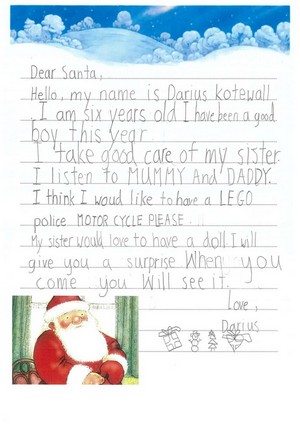 Dear Santa,
Hello, my name is Darius Kotewall
I am six years old I have been a good
boy this year
I take good care of my sister.
I listen to MUMMY And DADDY.
I think I woud like to have a LEGO
police MOTOR CYCLE PLEASE.
My sister would love to have a doll I will
give you a surprise When you
come you Will see it.
Love,
Darius